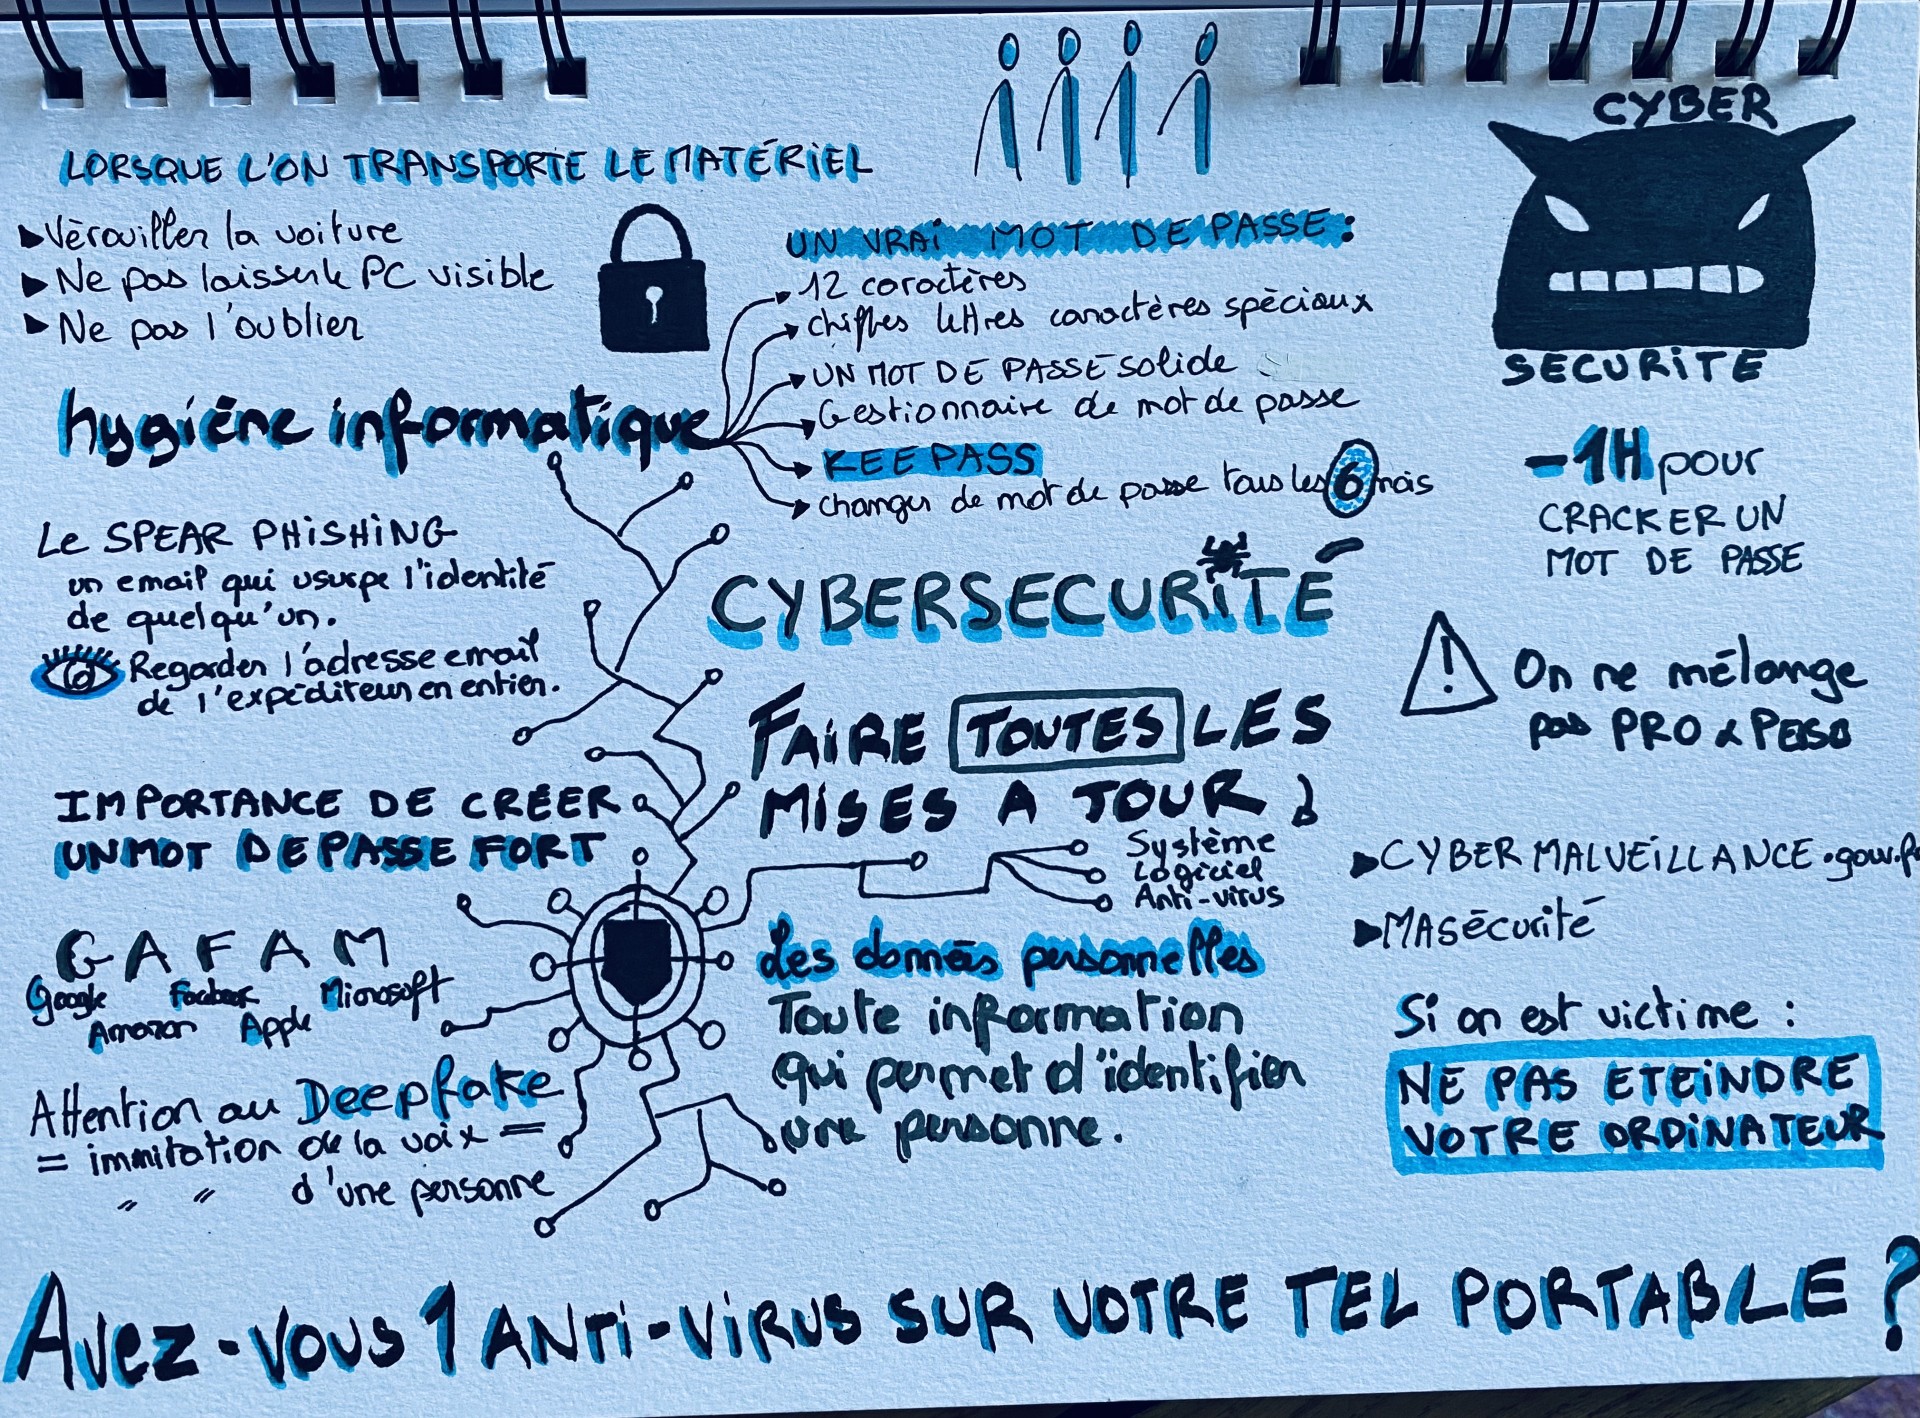 LORSQUE L'ON TRANSPORTE LE MATÉRIEL
Vèrouiller la voiture
Ne pas laisser le PC visible
Ne pas l'oublier
hygiène informatique
UN VRAI MOT DE PASSE :
12 caractères
chiffres lettres caractères spèciaux
UN MOT DE PASSE solide
Gestionnaire de mot de passe
KEEPASS
changer de mot de passe tous les 6 mois
CYBER
SECURITE
-1H pour
CRACKER UN
MOT DE PASSE
Le SPEAR PHISHING
un email qui usurpe l'identité
de quelqu'un.
Regarder l'adresse email
de l'expéditeur en entier.
CYBERSECURITÉ
FAIRE TOUTES LES
MISES A JOUR !
Système
Logiciel
Anti-virus
On ne mélange
pas PRO & PERSO
IMPORTANCE DE CRÉER
UN MOT DE PASSE FORT
GAFAM
Google Facebook Microsoft
Amazon Apple
Attention au Deepfake
= immitation de la voix =
" " d'une personne
Les données personnelles
Toute information
qui permet d'identifier
une personne.
CYBERMALVEILLANCE.gouv.fr
MAsécurité
Si on est victime :
NE PAS ETEINDRE
VOTRE ORDINATEUR
AVEZ-VOUS 1 ANTI-VIRUS SUR VOTRE TEL PORTABLE ?